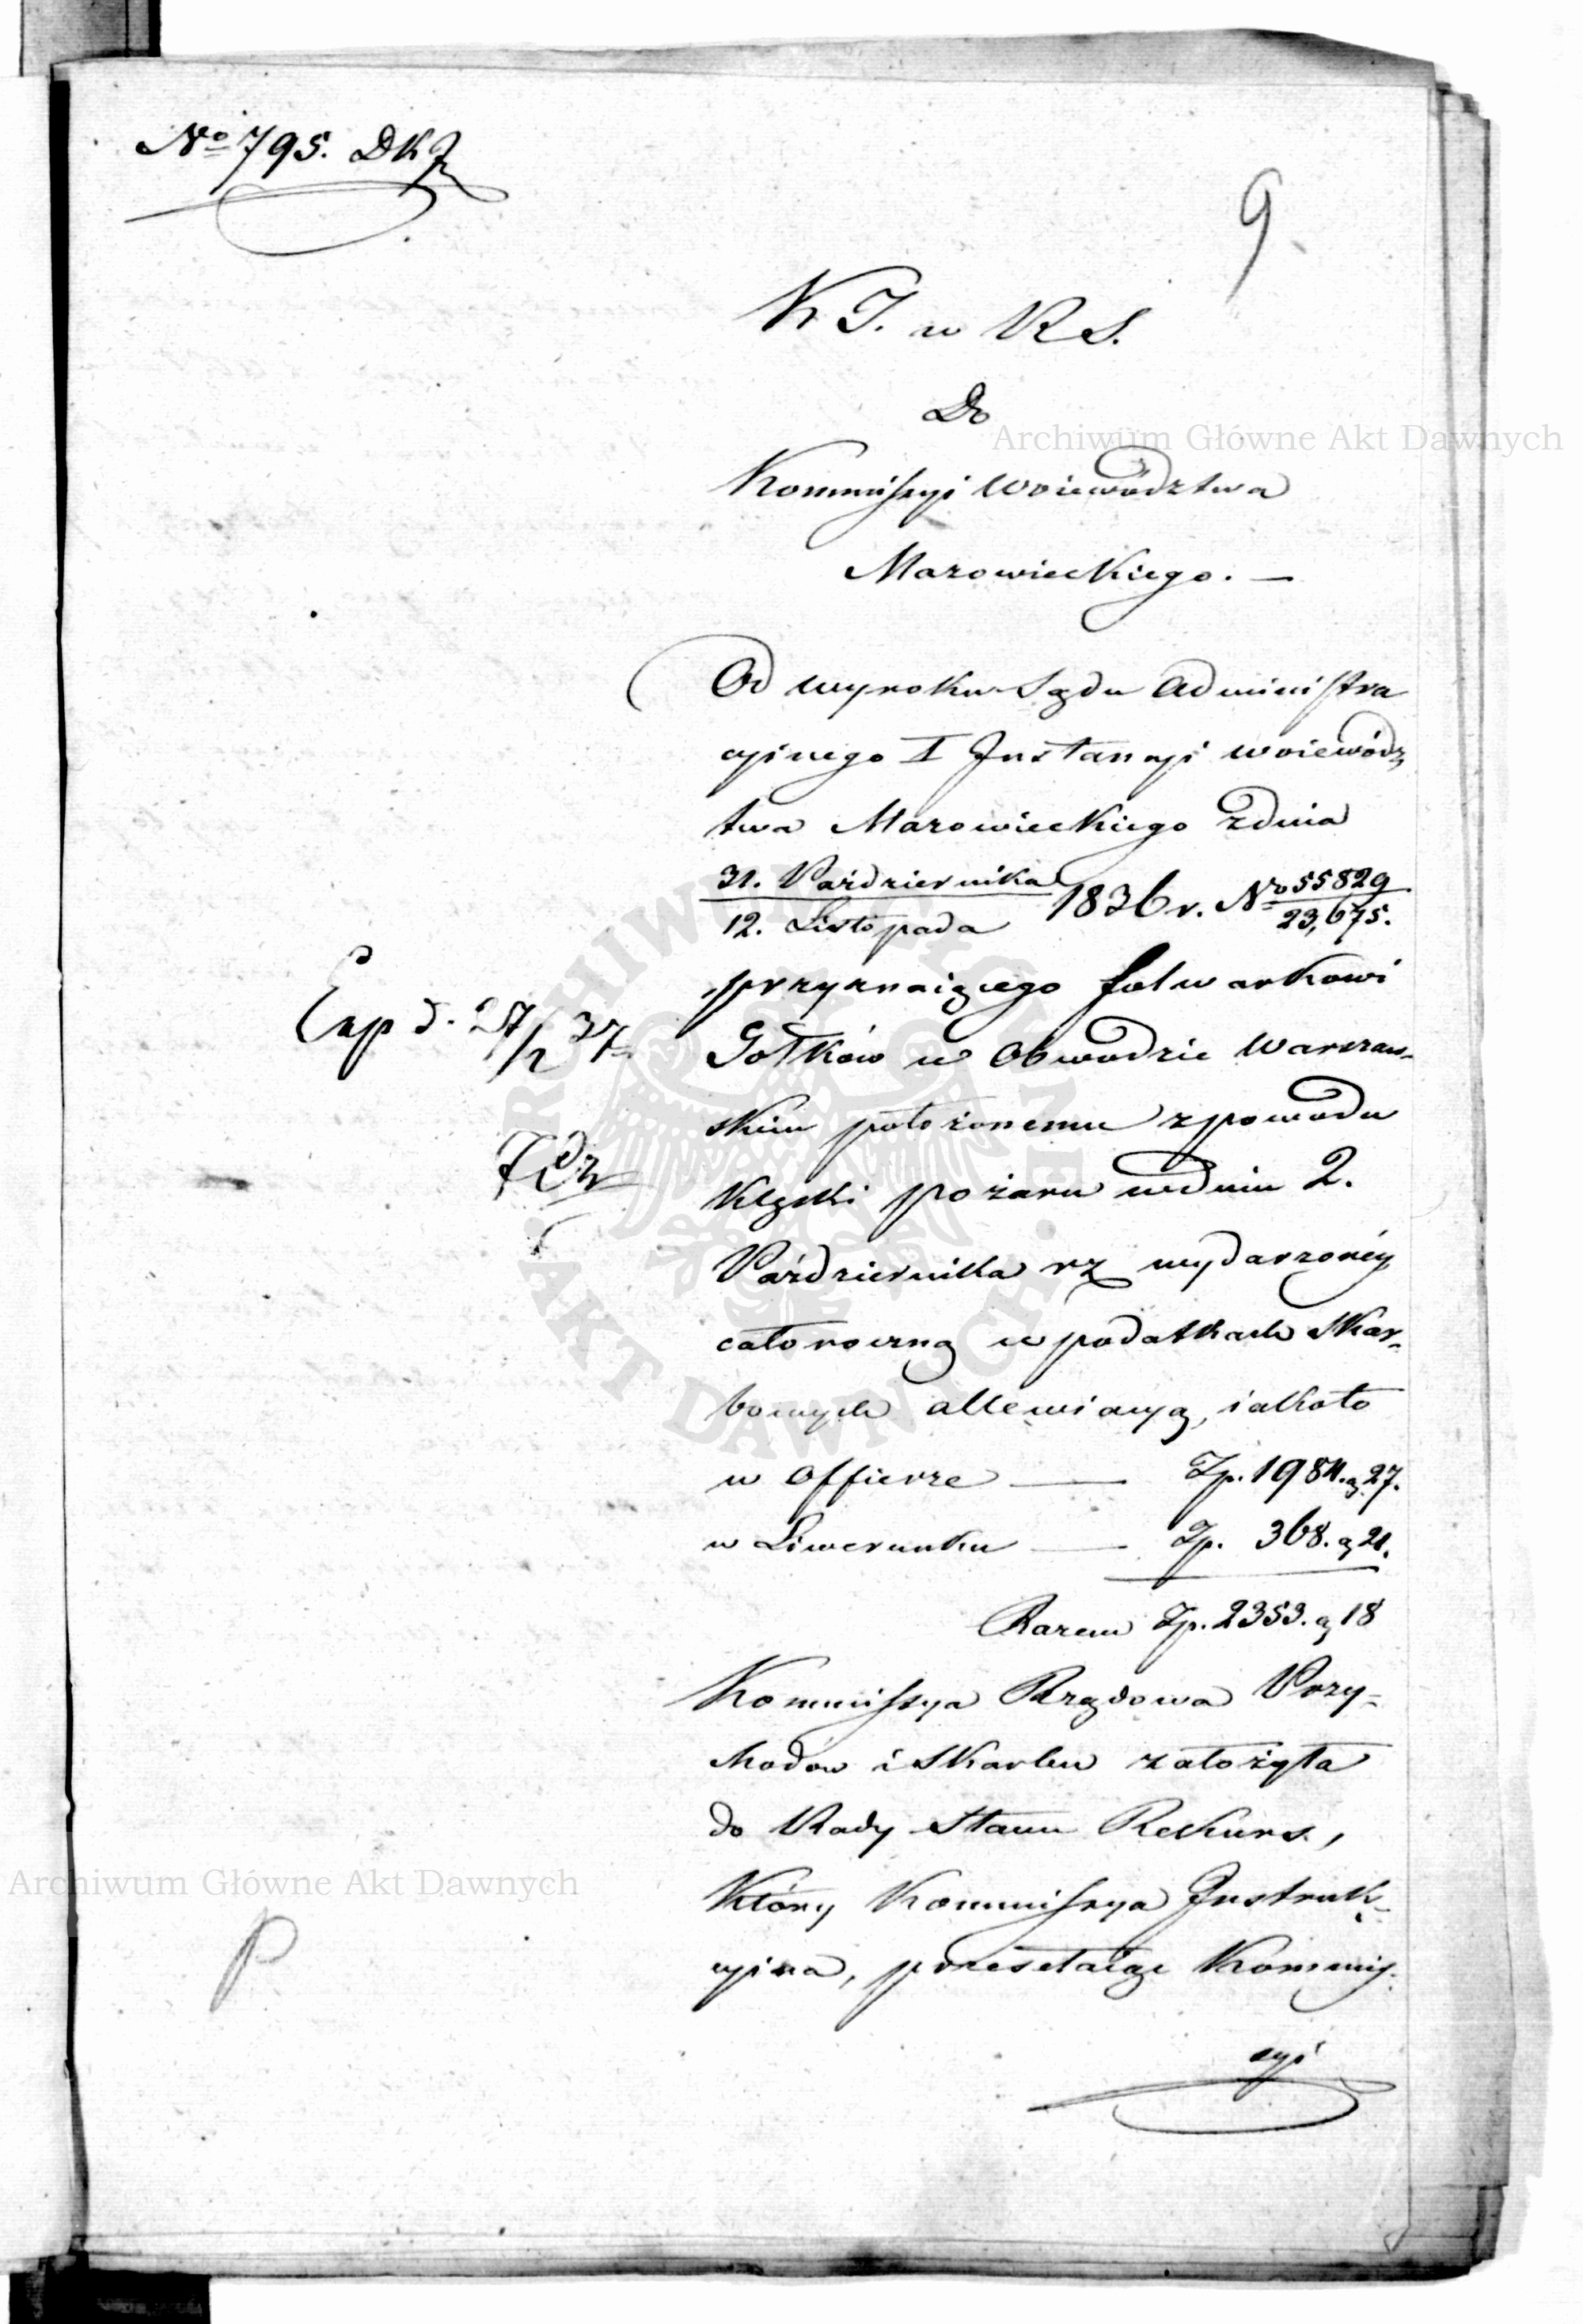 No 795. DKJ
9
K J. w R S.
Do
Kommissyi Woiewództwa
Mazowieckiego. —
Od wyroku Sądu Administra
cyinego I Instancyi woiewódz
twa Mazowieckiego z dnia
31. Października / 12. Listopada 1836 r. No 55829 / 23,675.
przyznaiącego folwarkowi
Gołków w Obwodzie Warszaw-
skim położonemu z powodu
klęski pożaru w dniu 2.
Października rz wydarzonéy
całoroczną w podatkach skar-
bowych allewiacyą, iakoto
w Offierze — Zp. 1984. g 27.
w Liwerunku — Zp. 368. g 21.
Razem Zp. 2353. g 18
Kommissya Rządowa Przy-
chodów i Skarbu założyła
do Rady Stanu Rekurs,
Który Kommissya Instruk-
cyina, przesełaiąc Kommis-
syi
Exp d. 27/2 37
Archiwum Główne Akt Dawnych
Archiwum Główne Akt Dawnych
ARCHIWUM GŁÓWNE
· AKT DAWNYCH ·
P